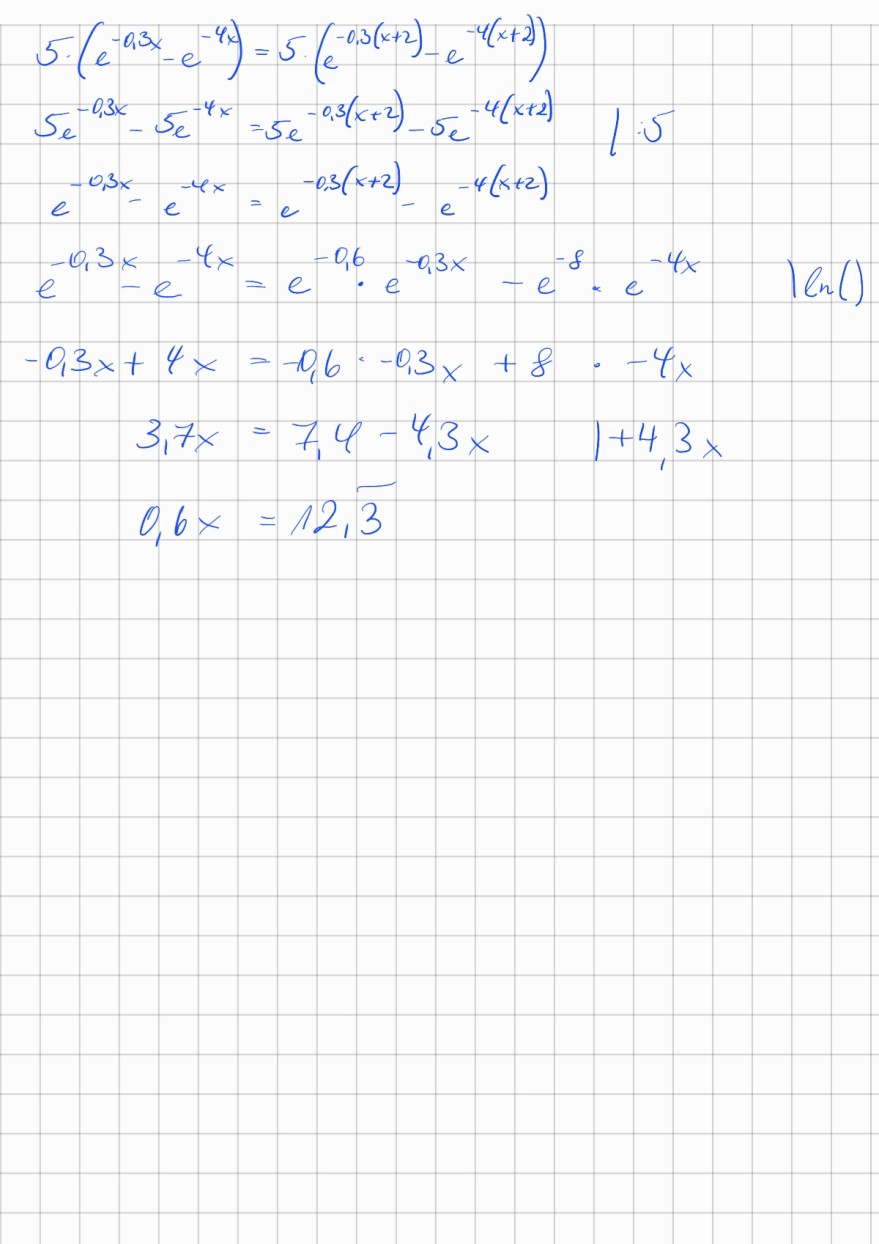 5·(e^{-0,3x} - e^{-4x}) = 5·(e^{-0,3(x+2)} - e^{-4(x+2)})
5e^{-0,3x} - 5e^{-4x} = 5e^{-0,3(x+2)} - 5e^{-4(x+2)} | :5
e^{-0,3x} - e^{-4x} = e^{-0,3(x+2)} - e^{-4(x+2)}
e^{-0,3x} - e^{-4x} = e^{-0,6} · e^{-0,3x} - e^{-8} · e^{-4x} | ln()
-0,3x + 4x = -0,6 · -0,3x + 8 · -4x
3,7x = 7,4 - 4,3x | +4,3x
0,6x = 12,3̅